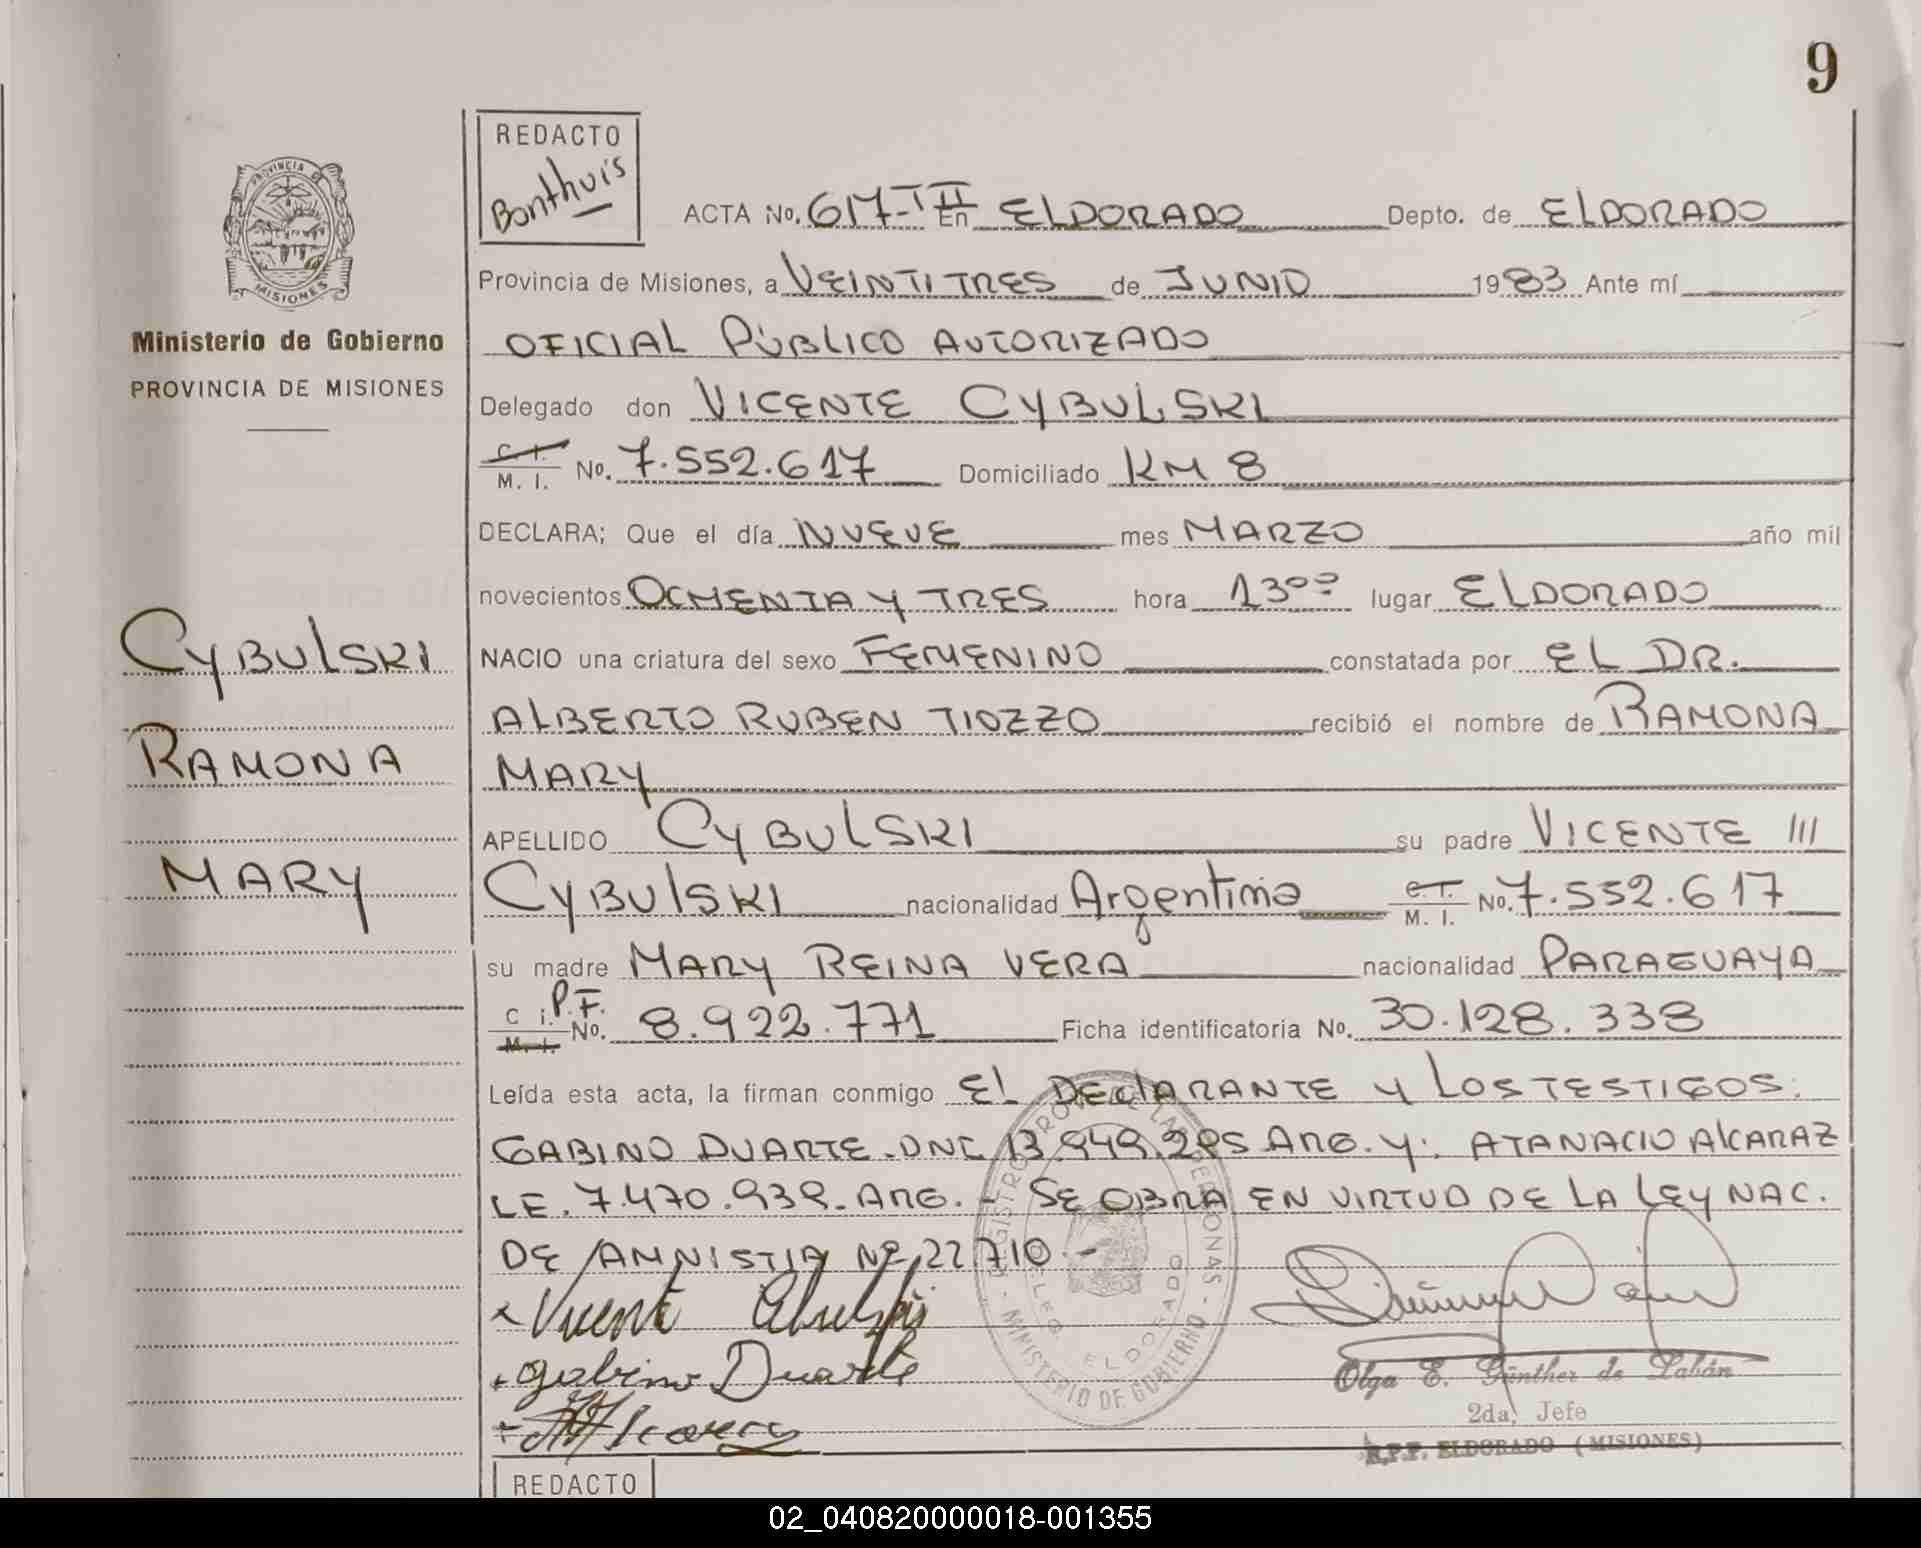 9
REDACTO
Bonthuis
ACTA No. 617-TºII En ELDORADO Depto. de ELDORADO
PROVINCIA DE
MISIONES
Provincia de Misiones, a VEINTITRES de JUNIO 1983 Ante mí
Ministerio de Gobierno
OFICIAL PÚBLICO AUTORIZADO
PROVINCIA DE MISIONES
Delegado don VICENTE CYBULSKI
C. I.
M. I. No. 7.552.617 Domiciliado KM 8
DECLARA; Que el día NUEVE mes MARZO año mil
novecientos OCHENTA Y TRES hora 13ºº lugar ELDORADO
CYBULSKI
NACIO una criatura del sexo FEMENINO constatada por EL DR.
ALBERTO RUBEN TIOZZO recibió el nombre de RAMONA
RAMONA
MARY
APELLIDO CYBULSKI su padre VICENTE III
MARY
CYBULSKI nacionalidad Argentina C. I. M. I. No. 7.552.617
su madre MARY REINA VERA nacionalidad PARAGUAYA
C i. P.F.
M. I. No. 8.922.771 Ficha identificatoria No. 30.128.338
Leída esta acta, la firman conmigo EL DEClARANTE Y LOS TESTIGOS:
GABINO DUARTE.DNI 13.949.285 ARG. Y: ATANACIO AlCARAZ
LE. 7.470.939.ARG. - SE OBRA EN VIRTUD DE LA LEY NAC.
DE AMNISTIA Nº 22710.-
Vicente Cibulski
Gabino Duarte
REGISTRO PROV. DE LAS PERSONAS - MINISTERIO DE GOBIERNO -
DELEG. ELDORADO
Olga E. Günther de Labán
2da, Jefe
R.P.P. ELDORADO (MISIONES)
REDACTO
02_040820000018-001355